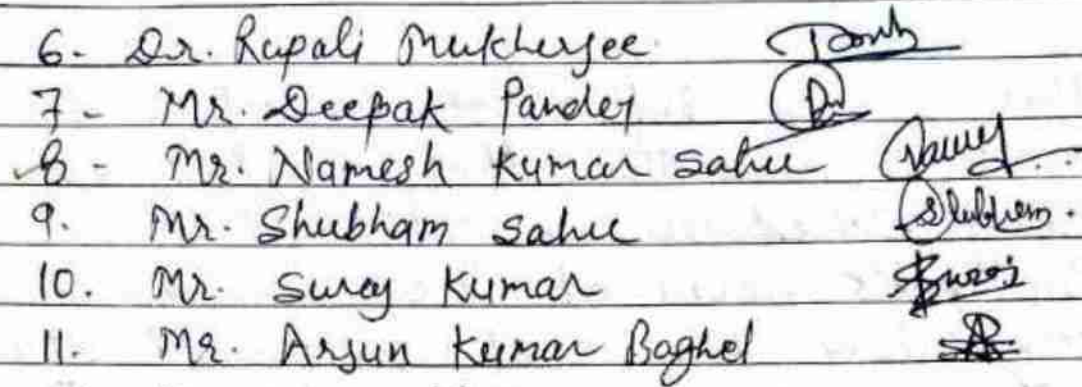 6- Dr. Rupali Mukherjee
7- Mr. Deepak Pandey
8- Mr. Namesh Kumar Sahu
9. Mr. Shubham Sahu Shubham.
10. Mr. Suraj Kumar Suraj
11. Mr. Arjun Kumar Baghel